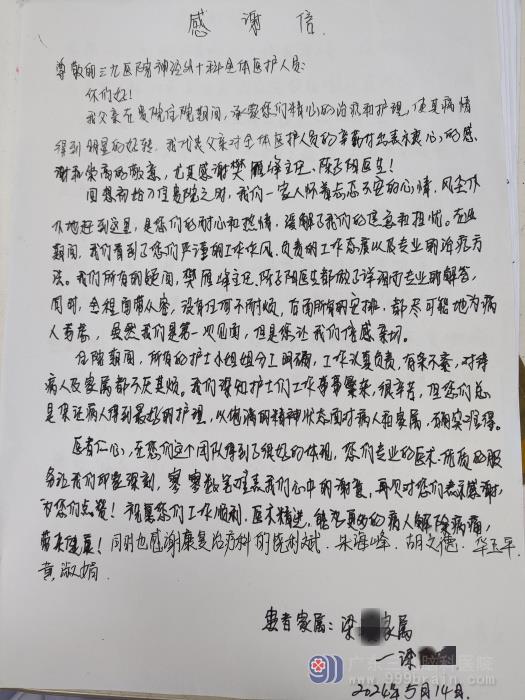 感谢信.
尊敬的三九医院神经外十科全体医护人员:
你们好!
我父亲在贵院住院期间,承蒙您们精心的治疗和护理,使其病情
得到明显的好转.我代表父亲对全体医护人员的辛勤付出表示衷心的感
谢和崇高的敬意,尤其感谢樊雁峰主任、陈子阳医生!
回想初始入住贵院之时,我们一家人怀着忐忑不安的心情,风尘仆
仆地赶到这里,是您们的耐心和热情,缓解了我们的焦容和担忧。在此
期间,我们看到了您们严谨的工作作风、负责的工作态度以及专业的治疗方
法。我们所有的疑问,樊雁峰主任、陈子阳医生都做了详细而专业的解答,
同时,全程面带从容,没有任何不耐烦,后面所有的安排,都尽可能地为病
人着想,虽然我们是第一次见面,但是您让我们倍感亲切.
住院期间,所有的护士小姐姐分工明确,工作认真负责,有条不紊,对待
病人及家属都不厌其烦。我们深知护士们工作事事繁杂,很辛苦,但您们总
是保证病人得到最好的护理,以饱满的精神状态面对病人和家属,确实难得。
医者仁心,在您们这个团队得到了很好的体现,您们专业的医术、优质的服
务让我们印象深刻,寥寥数笔难表我们心中的谢意,再次对您们表示感谢,
为您们点赞!祝愿您们工作顺利,医术精进,能为更多的病人解除病痛,
带来健康!同时也感谢康复治疗科的饶利斌.朱海峰.胡文德.华玉平.
黄淑娟.
患者家属:梁 家属
一梁
2024年5月14日.
广东三九脑科医院
www.999brain.com